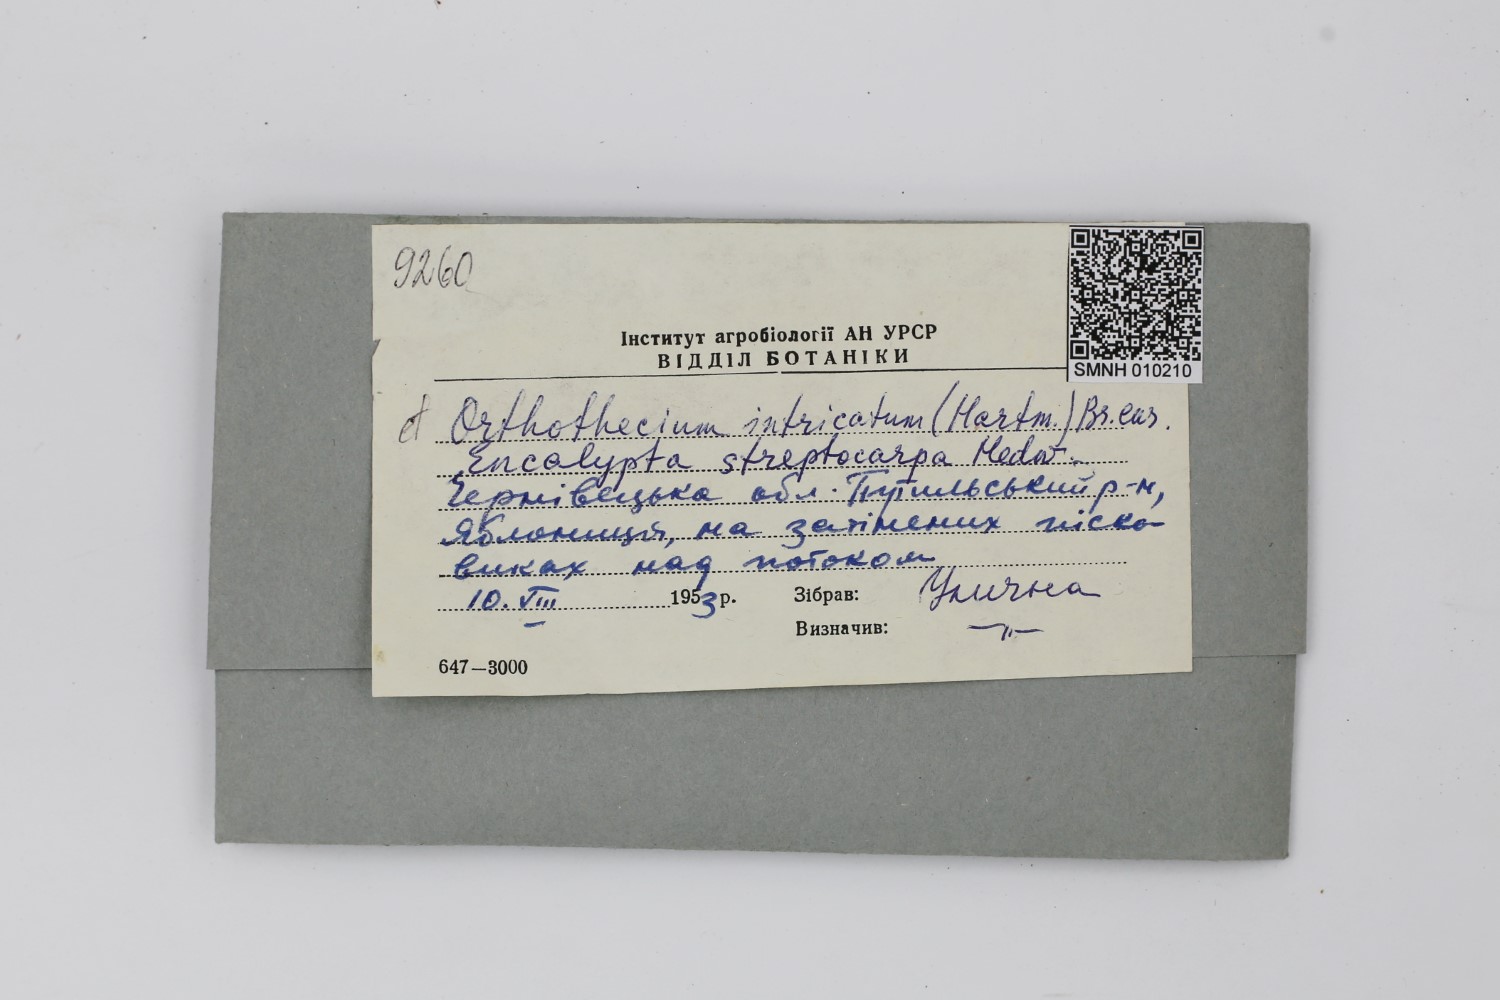 9260
SMNH 010210
Інститут агробіології АН УРСР
ВІДДІЛ БОТАНІКИ
Orthothecium intricatum (Hartm.) Br. eur.
Encalypta streptocarpa Hedw.
Чернівецька обл. Путильський р-н,
Яблониця, на затінених піско-
виках над потоком
10. VIII 1953 р.
Зібрав: Улична
Визначив: —"—
647—3000